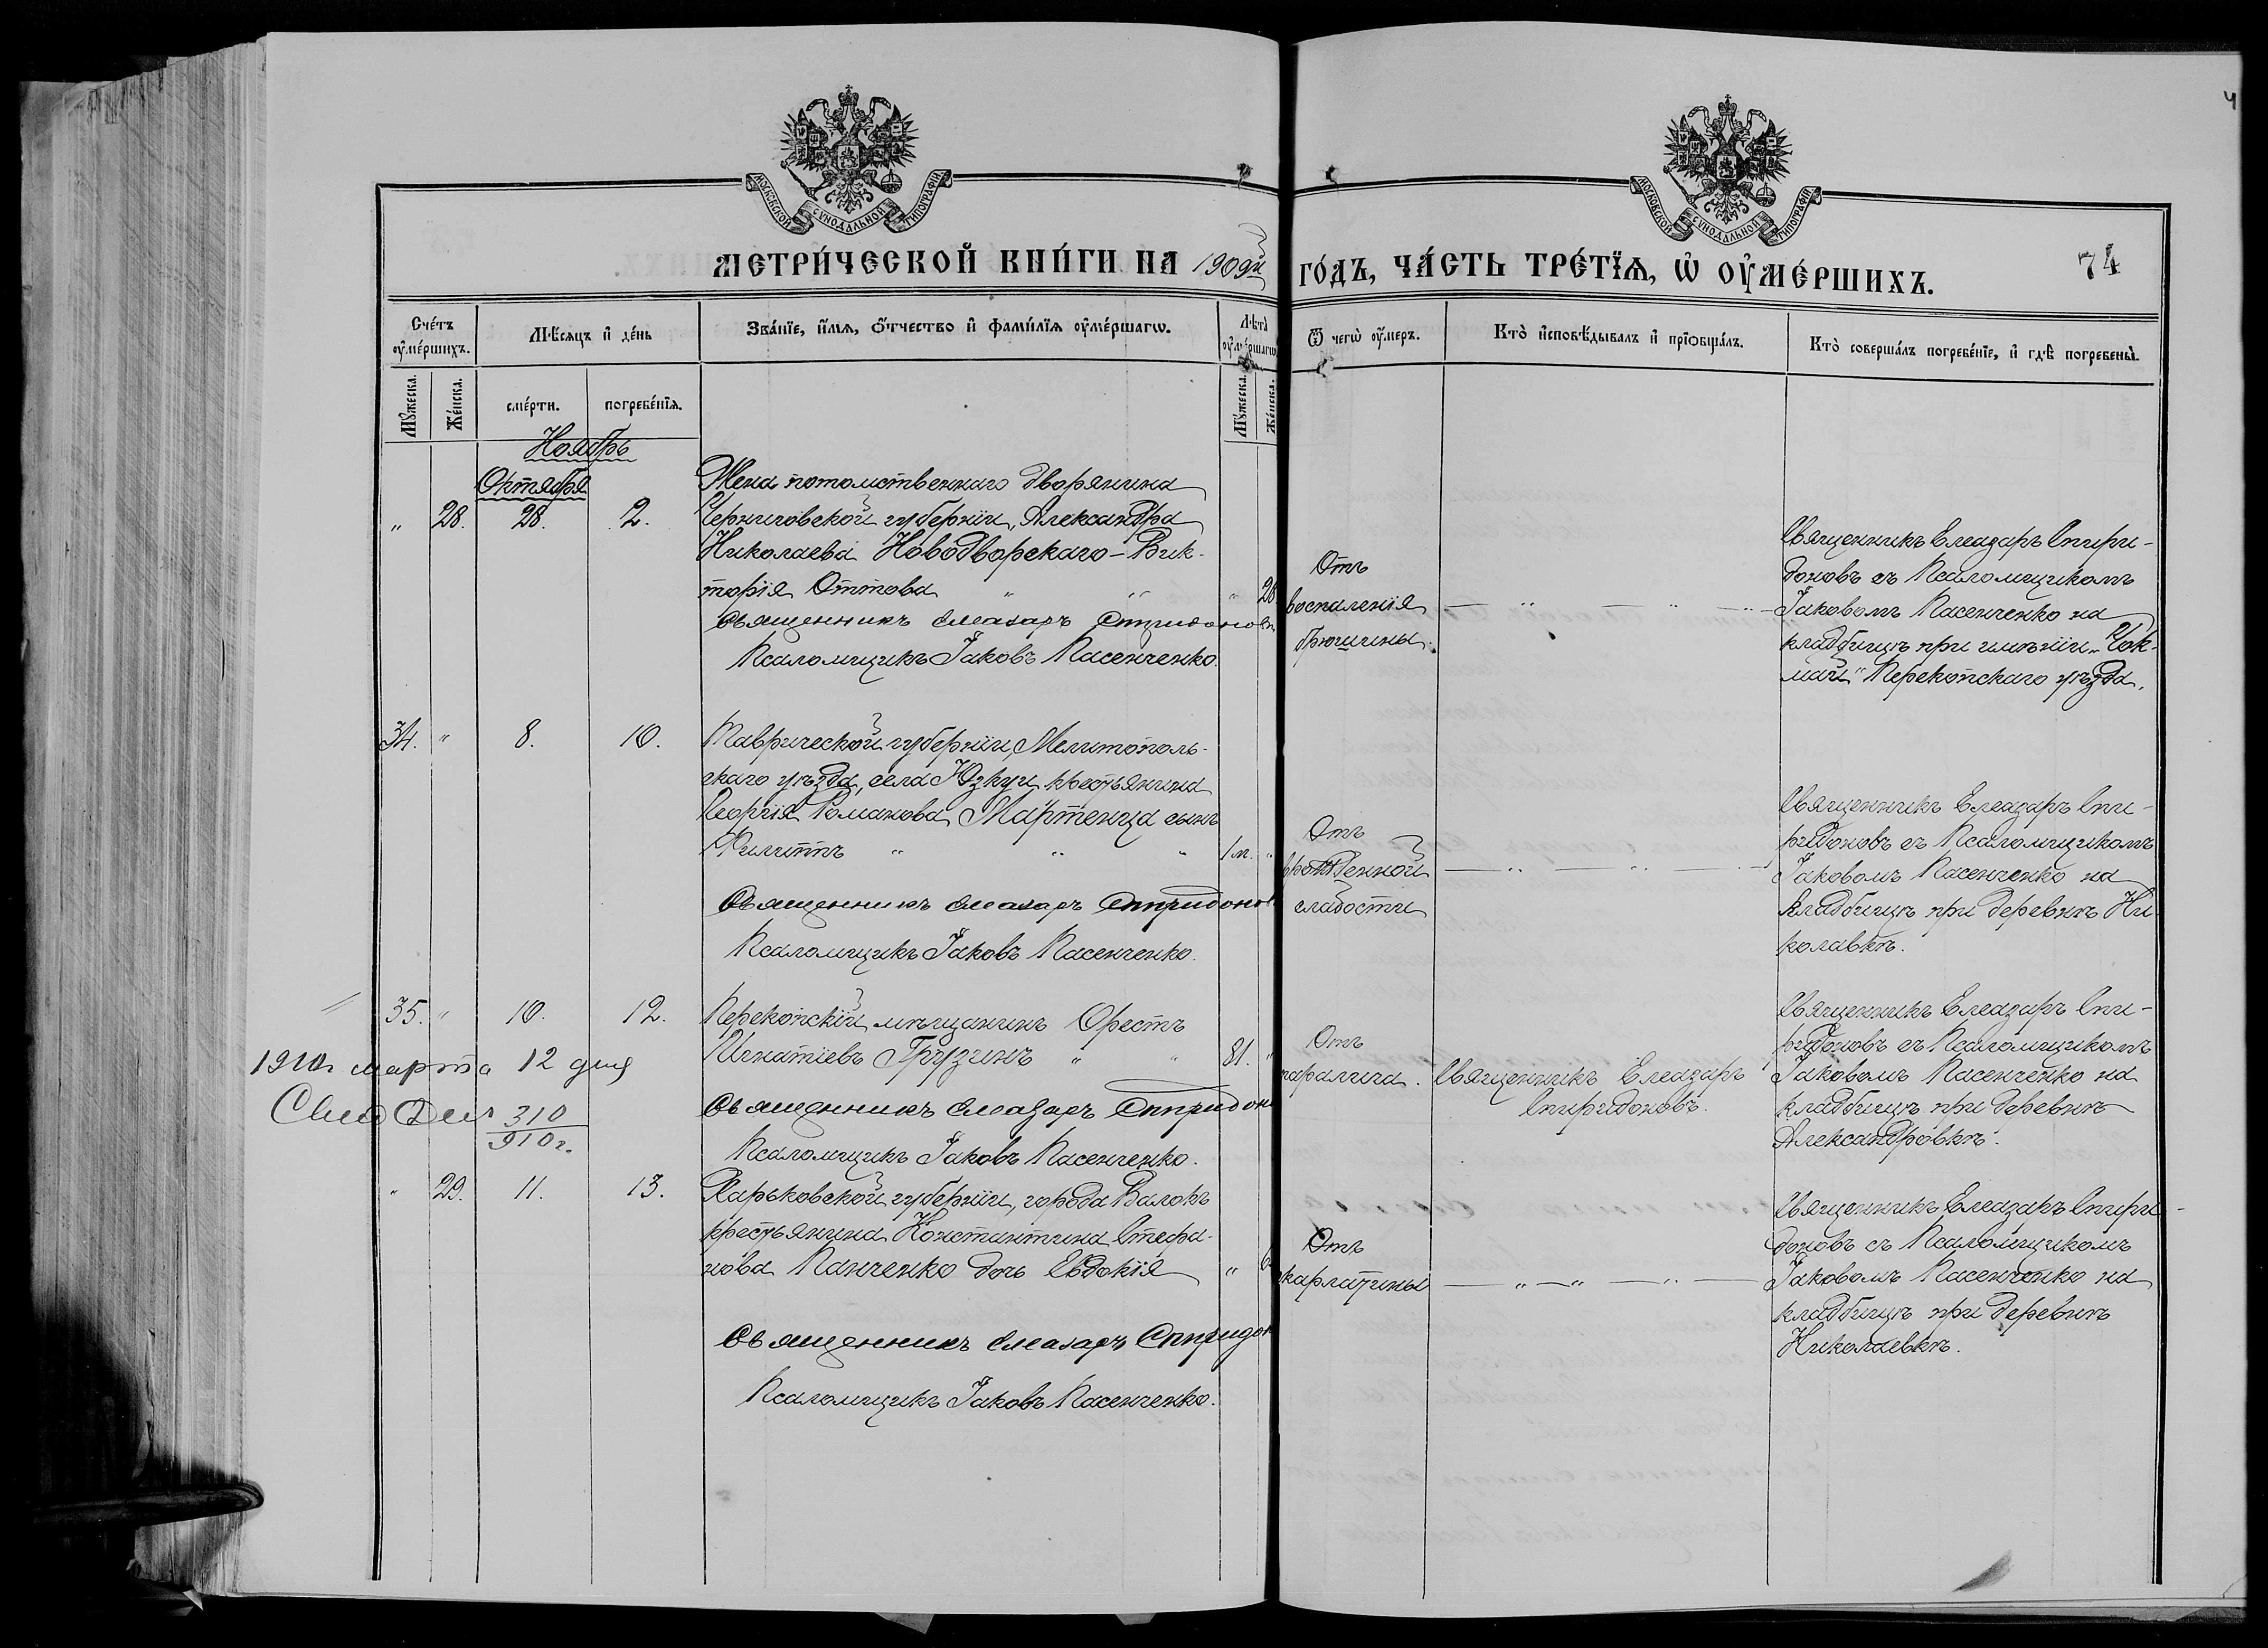 МОСКОВСКОЙ СУНОДАЛЬНОЙ ТИПОГРАФІИ
МОСКОВСКОЙ СУНОДАЛЬНОЙ ТИПОГРАФІИ
МЕТРИ́ЧЕСКОЙ КНИ́ГИ НА 1909й ГО́ДЪ, ЧА́СТЬ ТРЕ́ТІѦ, Ѡ ОУМЕ́РШИХЪ.
74
Сче́тъ оуме́ршихъ.
Мѣсяцъ и де́нь
Зва́нїе, и́мѧ, о́тчество и фами́лїѧ оуме́ршагѡ.
Лѣта̀ оуме́ршагѡ
Ѿ чегѡ̀ оу́меръ.
Кто̀ исповѣ́дывалъ и прїобща́лъ.
Кто̀ соверша́лъ погребе́нїе, и гдѣ̀ погребены̀.
Мꙋ́жеска.
Же́нска.
сме́рти.
погребе́нїѧ.
Мꙋ́жеска.
Же́нска.
Ноябрь
Октября
" 28. 28. 2.
Жена потомственнаго дворянина
Черниговской губерніи, Александра
Николаева Новодворскаго - Вик-
торія Оттова " " " 28
Священникъ Елеазаръ Спиридоновъ
Псаломщикъ Іаковъ Пасенченко.
Отъ
воспаленія
брюшины.
Священникъ Елеазаръ Спири-
доновъ съ Псаломщикомъ
Іаковомъ Пасенченко на
кладбищѣ при имѣніи "Чок-
май" Перекопскаго уѣзда.
34. " 8. 10.
Таврической губерніи, Мелитополь-
скаго уѣзда, села Юзкуи крестьянина
Георгія Романова Мартенца сынъ
Филиппъ " " " 1 м. "
Священникъ Елеазаръ Спиридонов
Псаломщикъ Іаковъ Пасенченко.
Отъ
врожденной
слабости
Священникъ Елеазаръ Спи-
ридоновъ съ Псаломщикомъ
Іаковомъ Пасенченко на
кладбищѣ при деревнѣ Ни-
колавкѣ.
35. " 10. 12.
Перекопскій мѣщанинъ Орестъ
Игнатіевъ Грузинъ " " 81. "
Священникъ Елеазаръ Спиридон
Псаломщикъ Іаковъ Пасенченко.
1910 г марта 12 дня
310
910 г.
Отъ
паралича.
Священникъ Елеазаръ
Спиридоновъ.
Священникъ Елеазаръ Спи-
ридоновъ съ Псаломщикомъ
Іаковомъ Пасенченко на
кладбищѣ при деревнѣ
Александровкѣ.
" 29. 11. 13.
Харьковской губерніи, города Валокъ
крестьянина Константина Стефа-
нова Панченко дочь Евдокія " 6
Священникъ Елеазаръ Спиридон
Псаломщикъ Іаковъ Пасенченко.
Отъ
скарлатины
Священникъ Елеазаръ Спири-
доновъ съ Псаломщикомъ
Іаковомъ Пасенченко на
кладбищѣ при деревнѣ
Николаевкѣ.